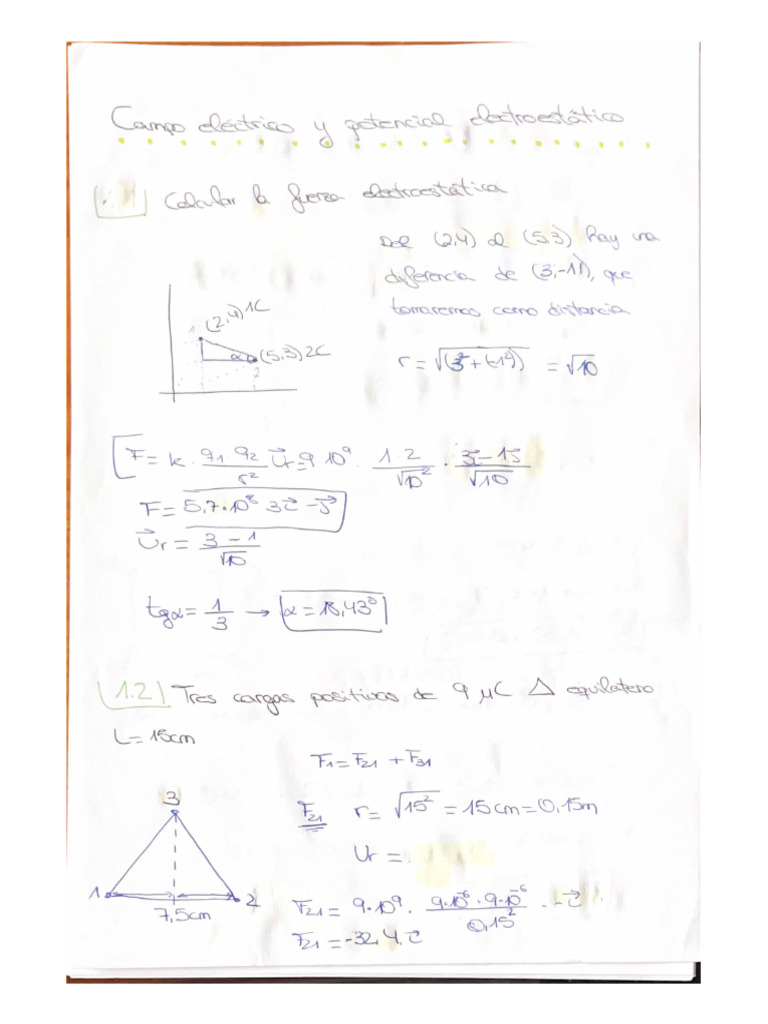 Campo eléctrico y potencial electroestático
1.1 Calcular la fuerza electroestática
Del (2,4) al (5,3) hay una
diferencia de (3,-1), que
tomaremos como distancia
(2,4) 1C
α (5,3) 2C
2
r = √(3² + (-1²)) = √10
F = K · q1 · q2 / r² Ur = 9 10⁹ · 1·2 / √10² · 3 - 1j / √10
F = 5,7·10⁸ 3i - j
Ur = 3 - 1 / √10
tgα = 1/3 → α = 18,43°
1.2 Tres cargas positivas de 9 μC Δ equilatero
L = 15cm
F1 = F21 + F31
3
F21 r = √15² = 15cm = 0,15m
Ur =
1 2
7,5cm
F21 = 9·10⁹ · 9·10⁻⁶ · 9·10⁻⁶ / 0,15² · -i
F21 = -32,4 i